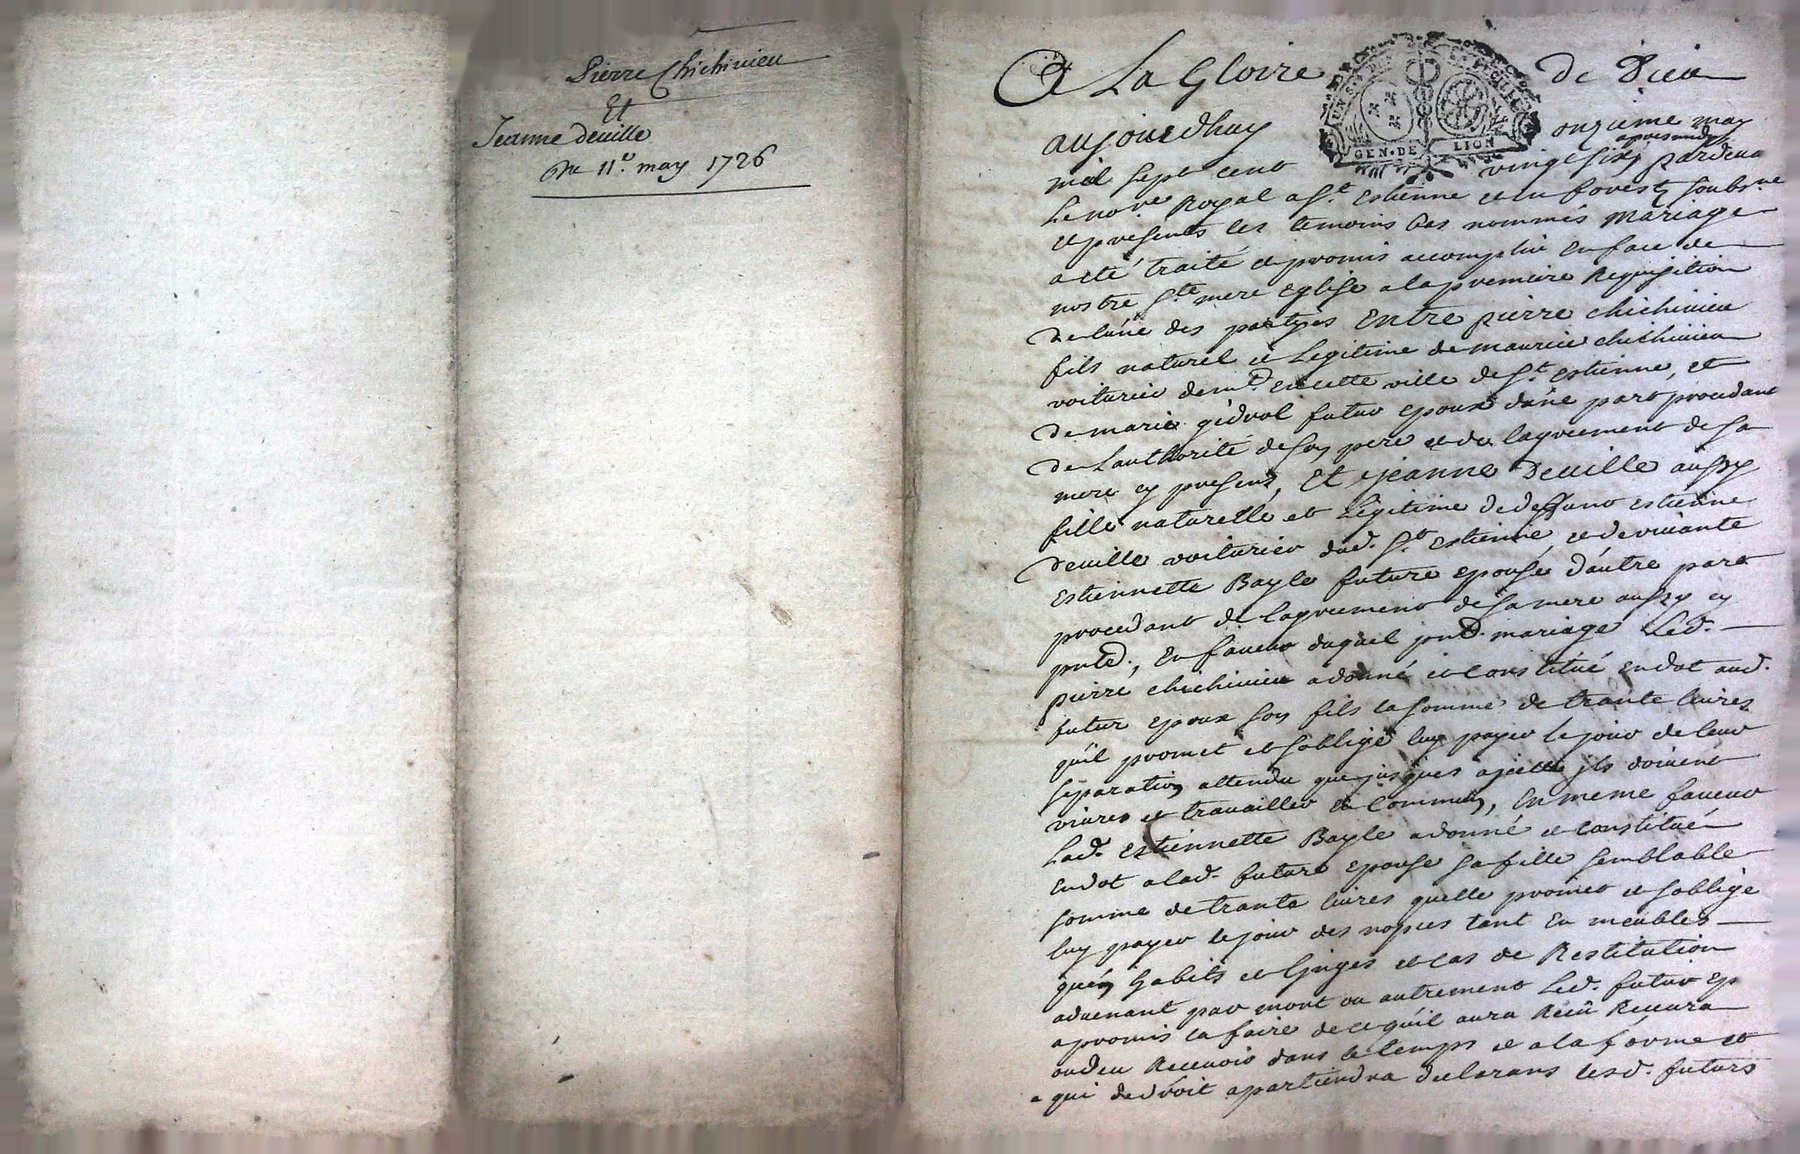 Pierre Chichivieu
Et
Jeanne deville
Du 11e. may 1726
A La Gloire de Dieu
aujourdhuy onzieme may
apresmidy
mil sept cent vingt six pardevt
Le nore Royal a St. Estienne et en forestz soubsne
et presents les temoins bas nommés Mariage
a eté traité et promis accomplir En face de
nostre Ste mere Eglise a la premiere Requisition
de lune des partyes Entre pierre chichivieu
fils naturel et Legitime de maurice chichivieu
voiturier demt. en cette ville de St. Estienne, et
de marie gidrol futur epoux dune part procedant
de Lauthorité de son pere et de lagreement de sa
mere cy presens, Et jeanne Deville aussy
fille naturelle et Legitime de deffunt Estienne
Deville voiturier dud. St. Estienne et de vivante
Estiennette Bayle future epouse dautre part
procedant de Lagreement de sa mere aussy cy
pnte, En faveur duquel pnt mariage Led.
pierre chichivieu a donné et constitué en dot aud.
futur epoux son fils la somme de trante livres
quil promet et soblige luy payer le jour de leur
separation attendu que jusques a icelle ils doivent
vivres et travailler en commun, En meme faveur
Lad. Estiennette Bayle a donné et constitué
en dot a lad. future epouse sa fille semblable
somme de trante livres quelle promet et soblige
luy payer le jour des nopces tant en meubles
quen habits et linges et cas de Restitution
advenant par mort ou autrement Led. futur ep
a promis la faire de ce quil aura Receu Recevra
ou deu Recevoir dans le temps et a la forme et
a qui de droit apartiendra declarans lesd. futurs
GEN. DE LION